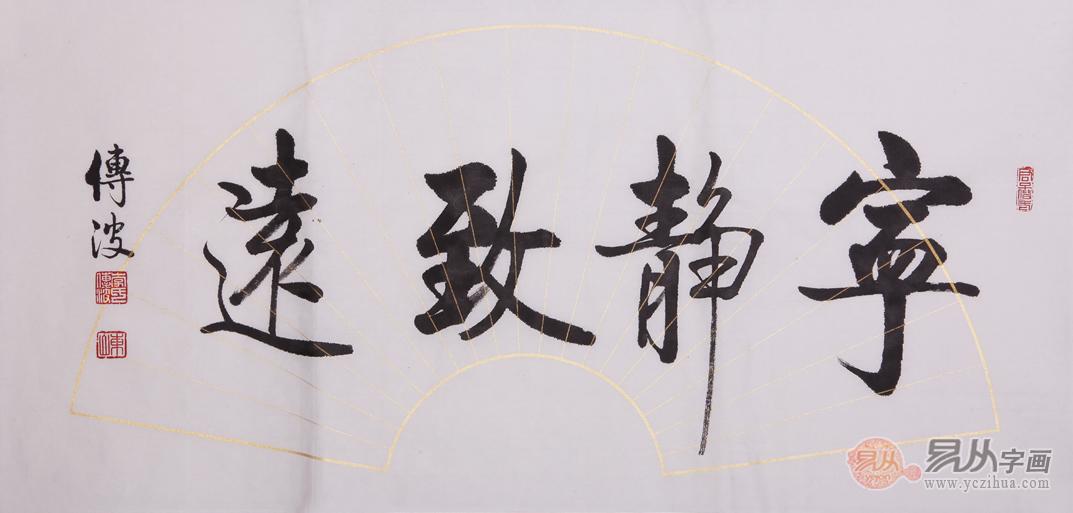 寧静致遠
傳波
易从
易从字画
www.yczihua.com